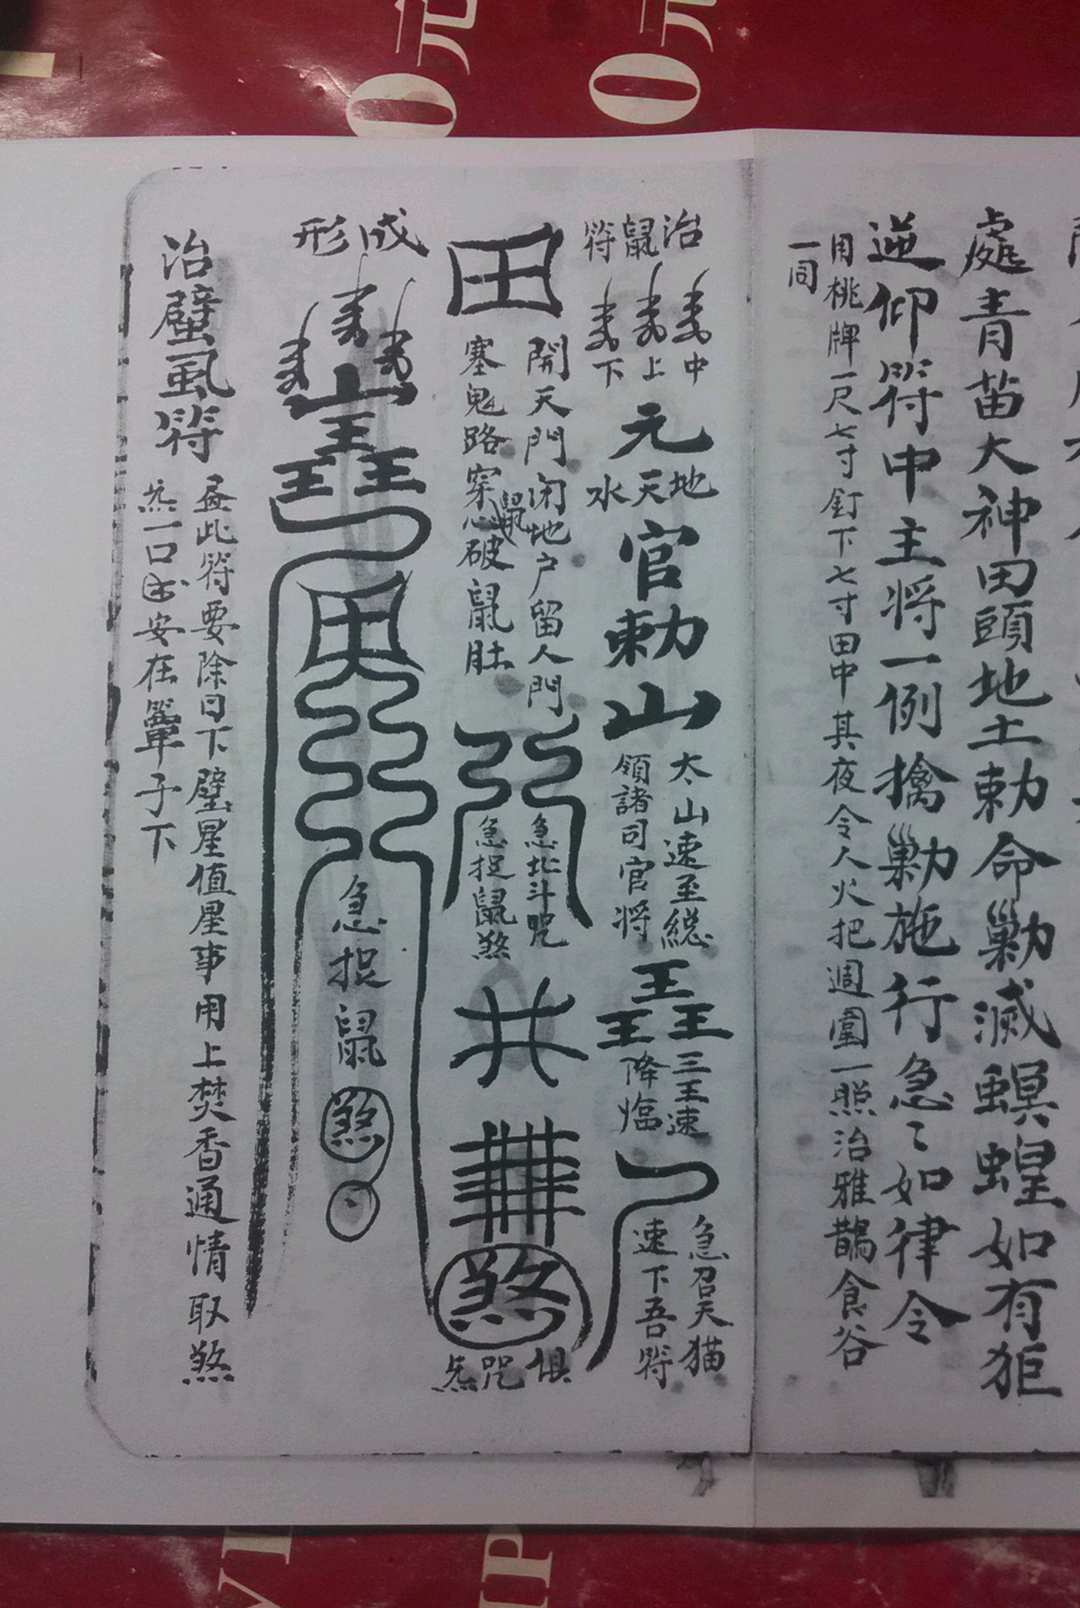 處青苗大神田頭地土勅命勦滅螟蝗如有拒
逆仰符中主将一例擒勦施行急〻如律令
用桃牌一尺七寸釘下七寸田中其夜令人火把週圍一照治雅鵲食谷
一同
治鼠符
中上下
元
地天水
官勅山
太山速至総
領諸司官将
王王王
三王速
降臨
急召天猫
速下吾符
田
開天門闭地户留人門
塞鬼路穿心破鼠肚
鼠
急北斗咒
急捉鼠煞
井
煞
俱咒炁
成形
山王王王
田
急捉鼠煞
治壁虱符
此符要除日下壁星值星事用上焚香通情取煞
炁一口安在簟子下
0元
0元
VI
IP